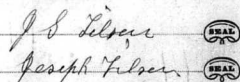 J S Tilsen SEAL
Joseph Tilsen SEAL